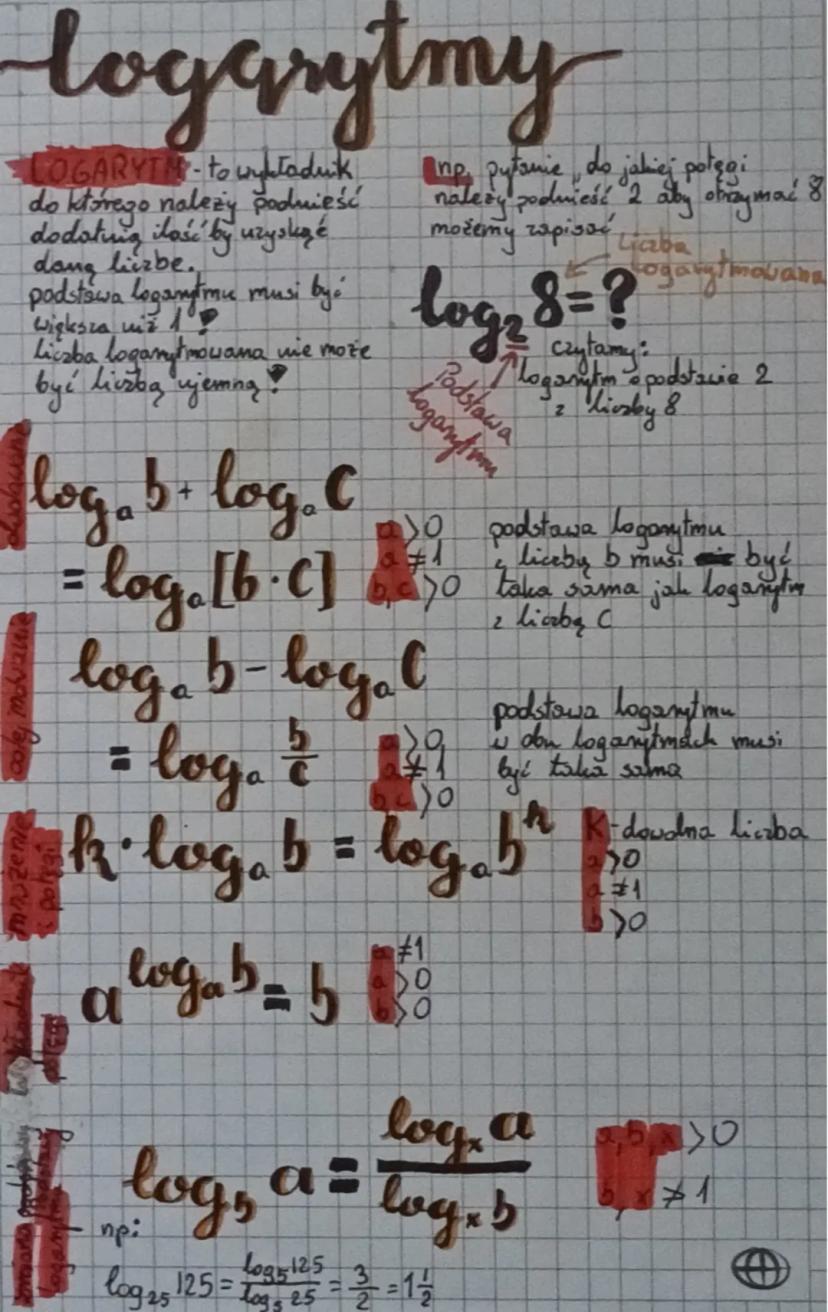 logarytmy
LOGARYTM - to wykładnik
do którego należy podnieść
dodatnią ilość by uzyskać
daną liczbe.
podstawa logarytmu musi być
większa niż 1!
liczba logarytmowana nie może
być liczbą ujemną!
np. pytanie „do jakiej potęgi
należy podnieść 2 aby otrzymać 8
możemy zapisać
liczba
logarytmowana
log₂ 8 = ?
Podstawa
logarytmu
czytamy:
logarytm o podstawie 2
z liczby 8
logₐ b + logₐ C
= logₐ [b · C]
a > 0
a ≠ 1
b, c > 0
podstawa logarytmu
z liczby b musi być
taka sama jak logarytm
z liczbą C
odejmowanie
logₐ b - logₐ C
= logₐ b/c
a > 0
a ≠ 1
b, c > 0
podstawa logarytmu
w obu logarytmach musi
być taka sama
k · logₐ b = logₐ bᵏ
K - dowolna liczba
a > 0
a ≠ 1
b > 0
a^(logₐ b) = b
a ≠ 1
a > 0
b > 0
potęgi
logarytmu
log_b a = log_x a / log_x b
a, b, x > 0
b, x ≠ 1
np:
log₂₅ 125 = log₅ 125 / log₅ 25 = 3/2 = 1 1/2